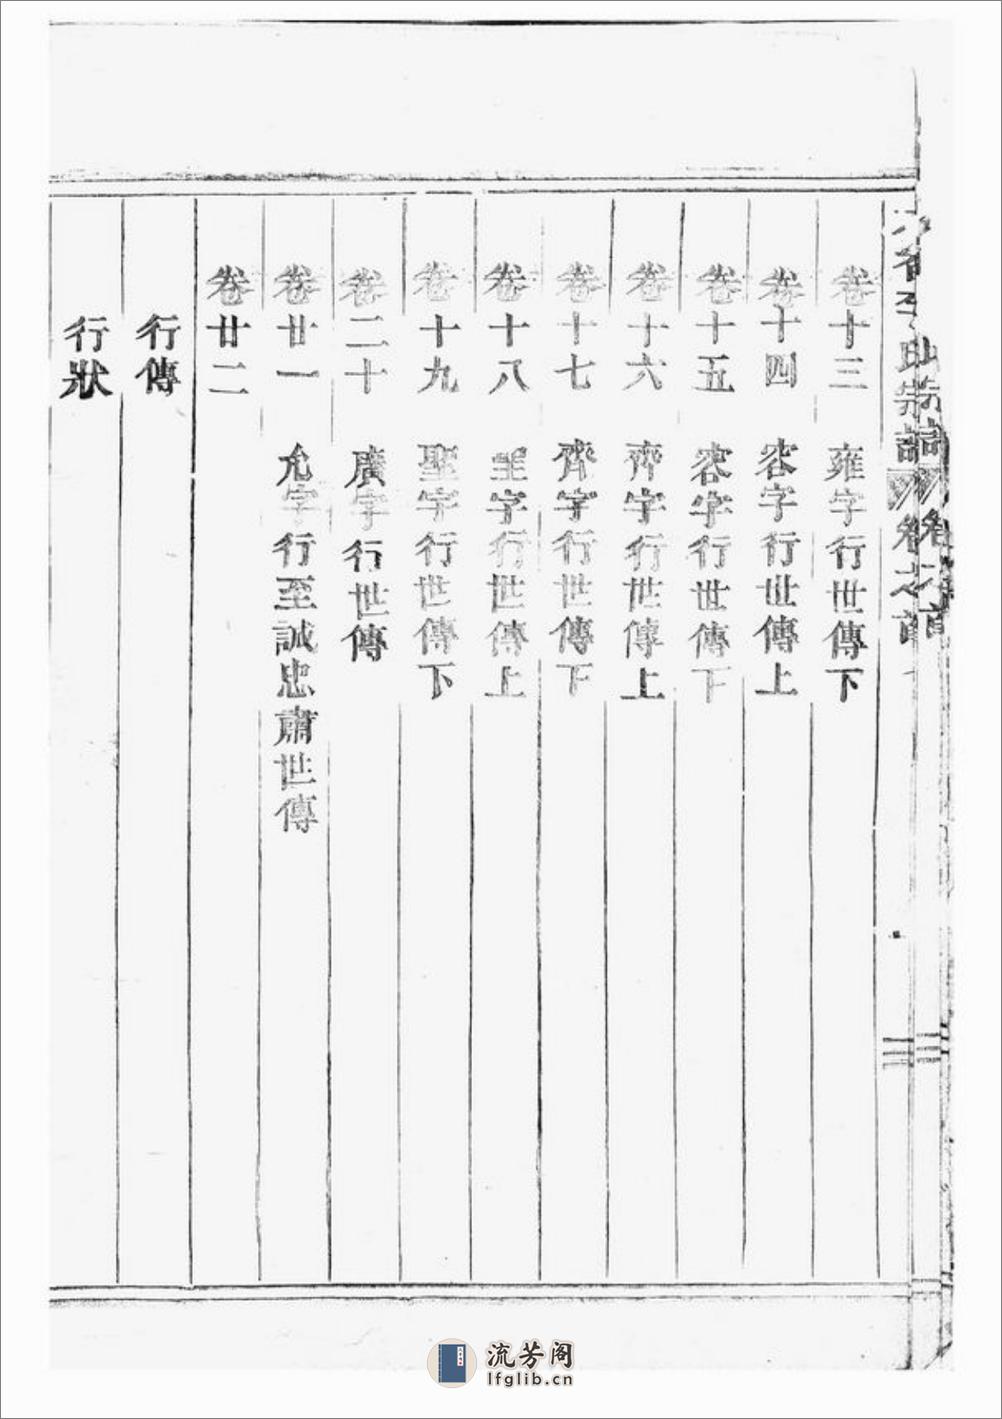 卷十三 雍字行世傳下
卷十四 容字行世傳上
卷十五 容字行世傳下
卷十六 齊字行世傳上
卷十七 齊字行世傳下
卷十八 聖字行世傳上
卷十九 聖字行世傳下
卷二十 廣字行世傳
卷廿一 允字行至誠忠肅世傳
卷廿二
行傳
行狀
流芳阁
lfglib.cn